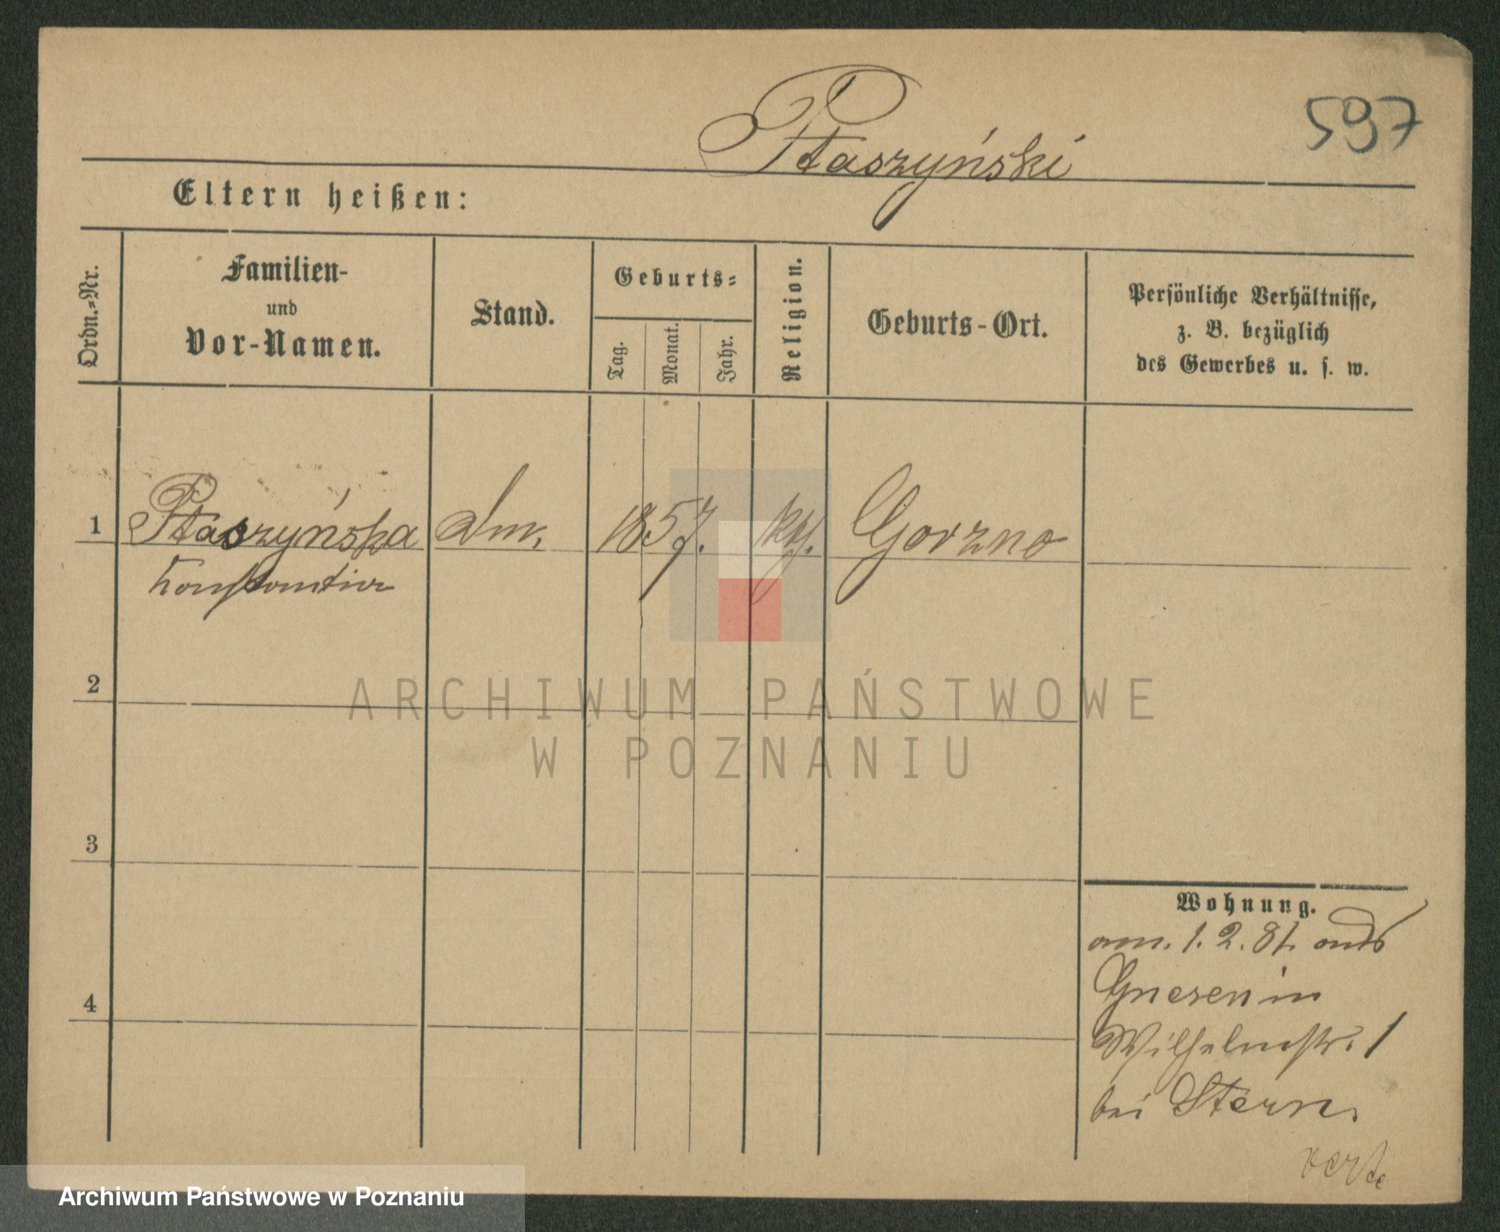 Ptaszyński
597
Eltern heißen:
Ordn.-Nr.
Familien-
und
Vor-Namen.
Stand.
Geburts-
Tag.
Monat.
Jahr.
Religion.
Geburts-Ort.
Persönliche Verhältnisse,
z. B. bezüglich
des Gewerbes u. s. w.
1 Ptaszyńska 1857. Gorzno
2
3
4
ARCHIWUM PAŃSTWOWE
W POZNANIU
Wohnung.
1. 2. 81.
Gnesen in
Wilhelmstr. 1
bei Stern.
Archiwum Państwowe w Poznaniu